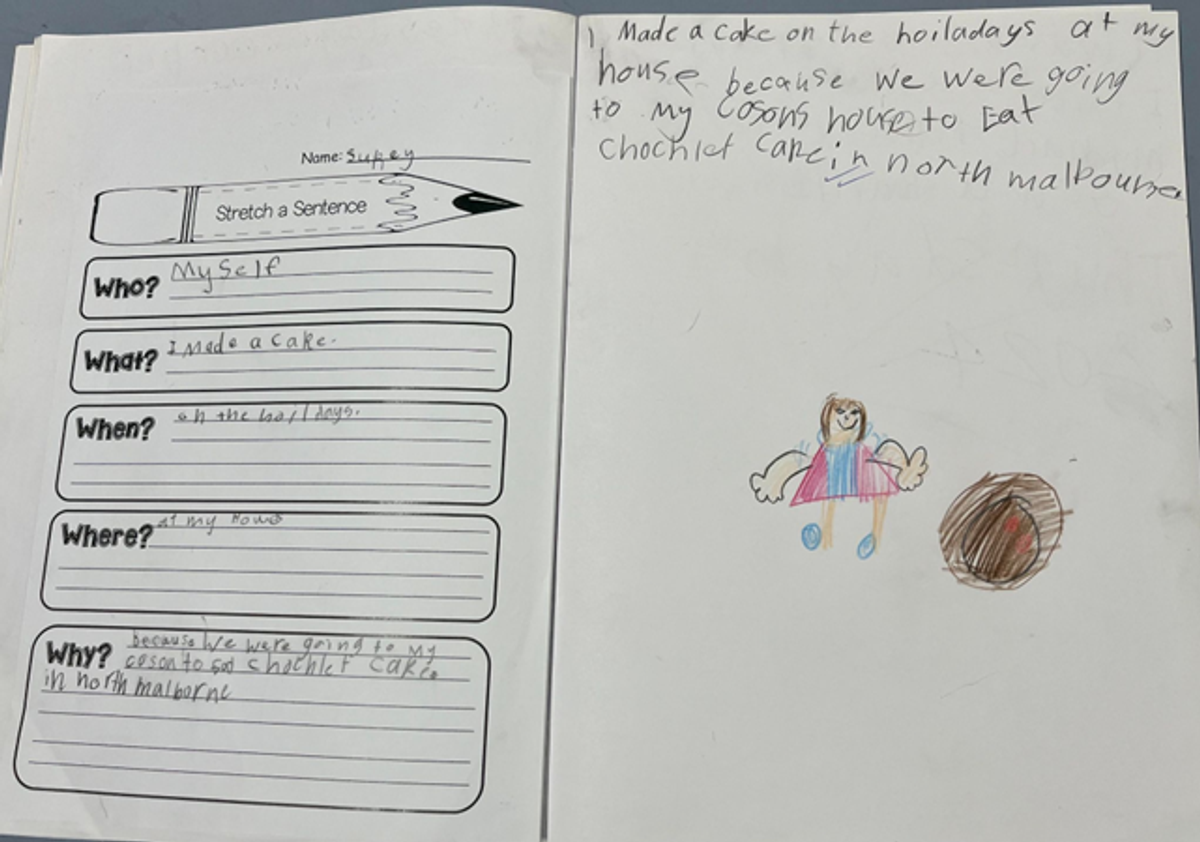 Name:
Stretch a Sentence
Who? Myself
What? I Made a cake.
When? on the haildays.
Where? at my
Why? because we were going to my
coson to chochlet cake
in north malborne
I Made a cake on the hoiladays at my
house because we were going
to my cosons house to Eat
chochlet cake in north malbourne